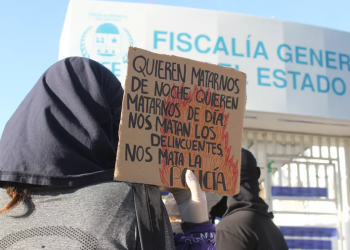 FISCALÍA GENER
EL ESTADO
QUIEREN MATARNOS
DE NOCHE QUIEREN
MATARNOS DE DÍA
NOS MATAN LOS
DELINCUENTES
NOS MATA LA
POLICÍA